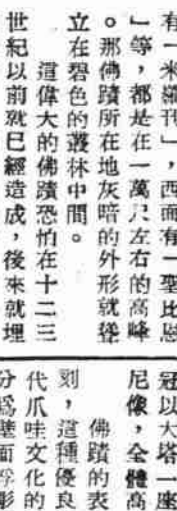 有一米羅刊」，西面有一聖比恩
」等，都是在一萬尺左右的高峰
。那佛蹟所在地灰暗的外形就聳
立在碧色的叢林中間。
這偉大的佛蹟恐怕在十二三
世紀以前就已經造成，後來就埋
冠以大塔一座
尼像，全體高
佛蹟的表
刻，這種優良
代爪哇文化的
分爲壁面浮彫